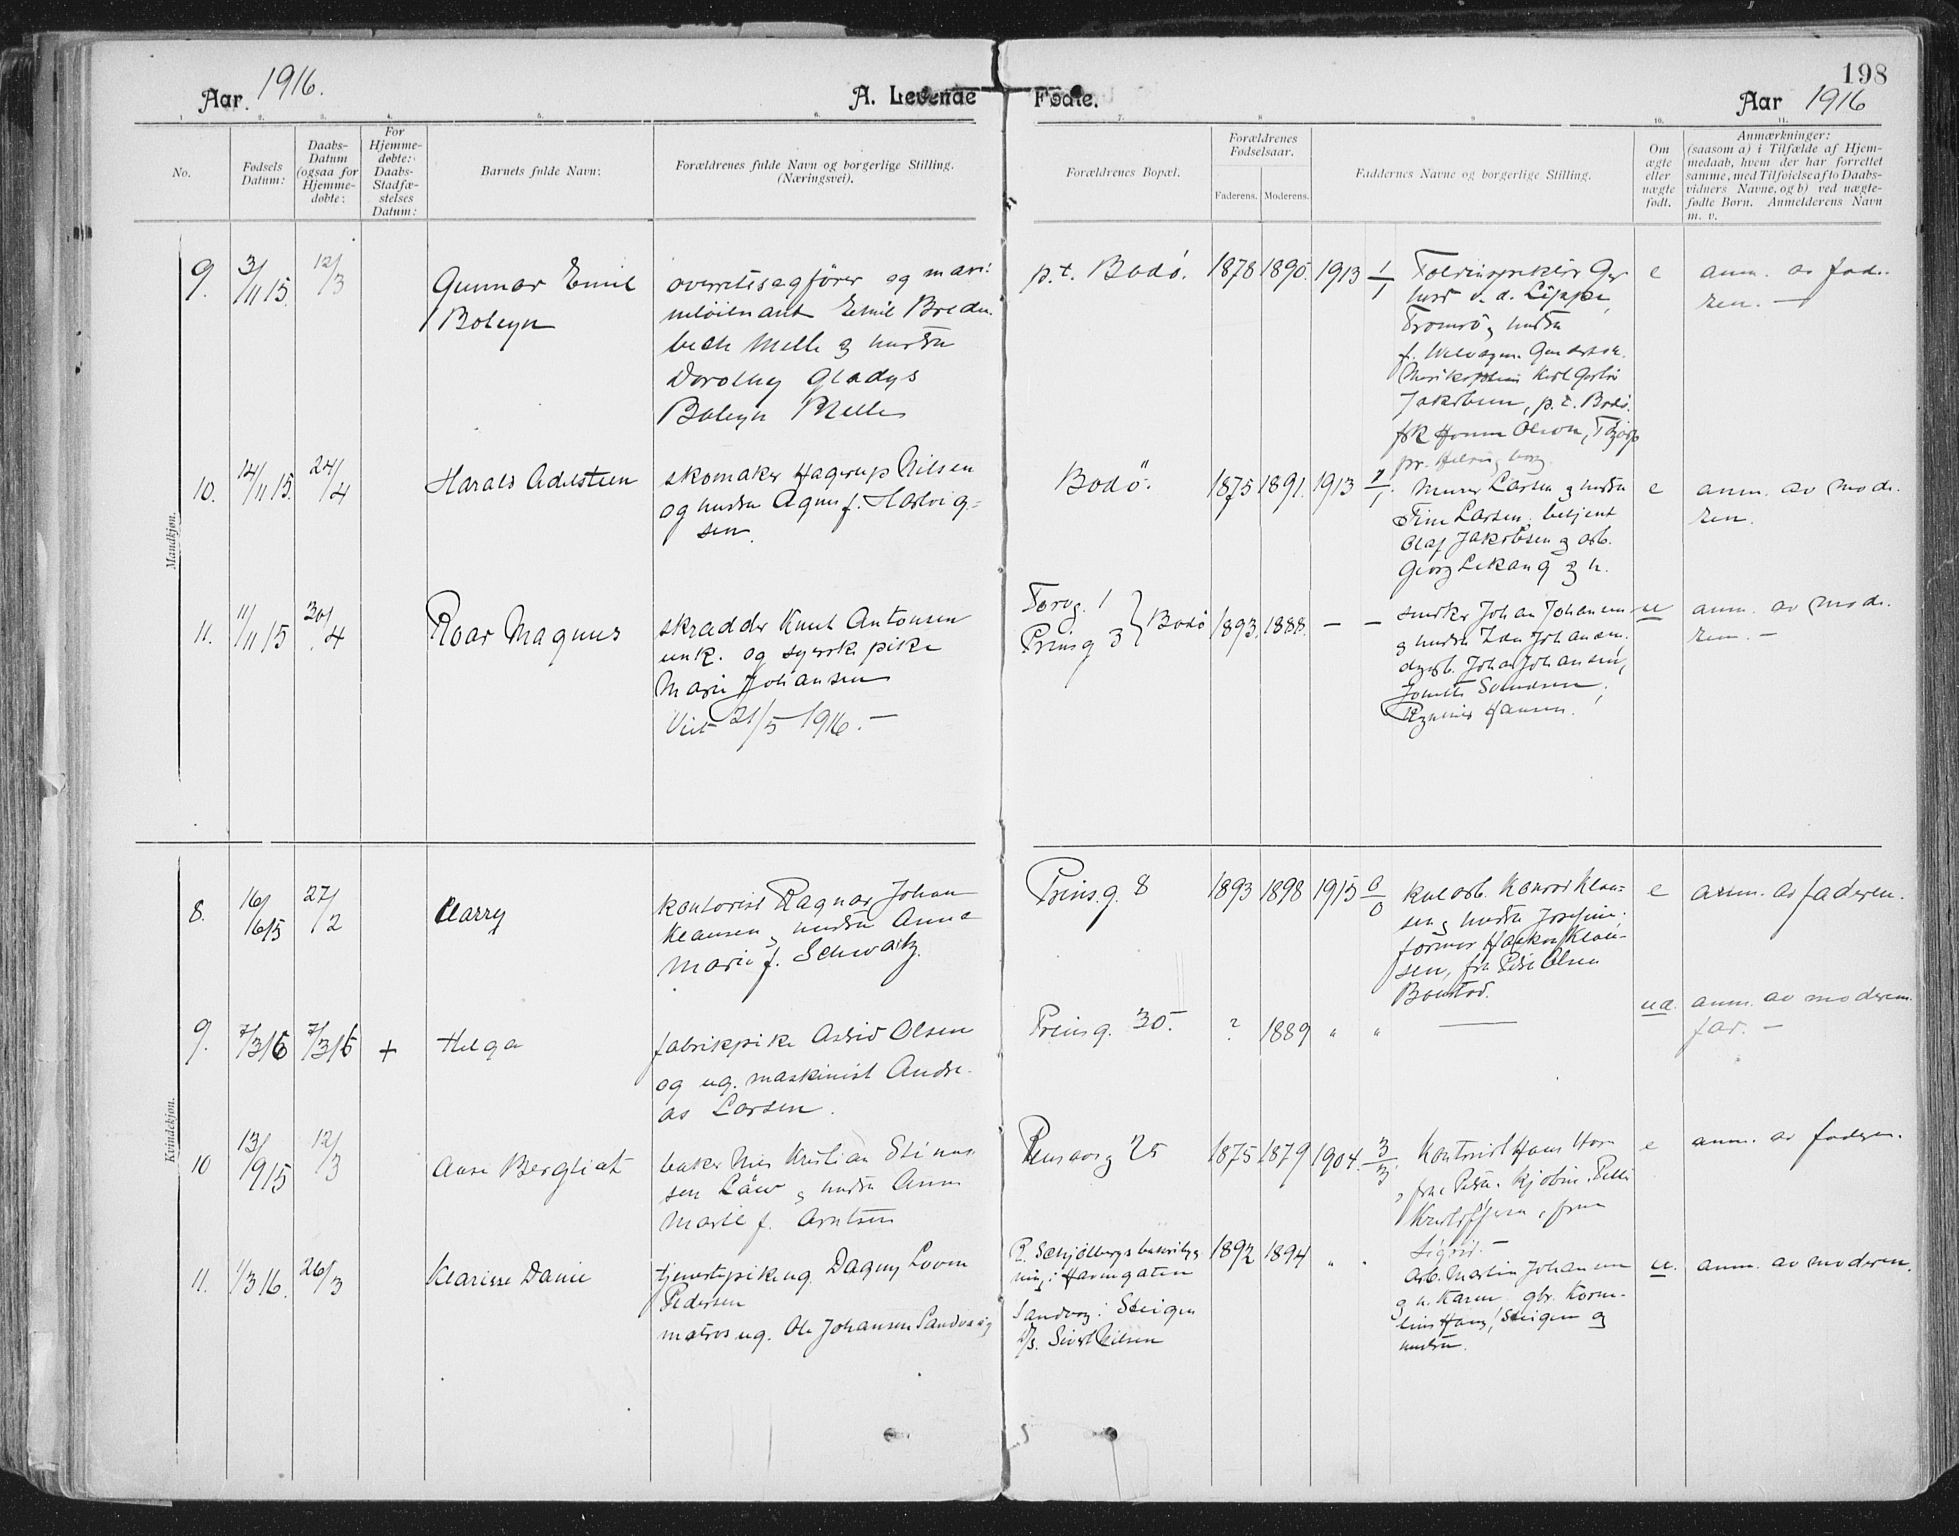 198
Aar 1916.
A. Levende
Fødte.
Aar 1916
1. 2. 3. 4. 5. 6. 7. 8. 9. 10. 11.
No.
Fødsels Datum:
Daabs-Datum (ogsaa for Hjemme-døbte:
For Hjemme-døbte: Daabs-Stadfæ-stelses Datum:
Barnets fulde Navn:
Forældrenes fulde Navn og borgerlige Stilling.
(Næringsvei).
Forældrenes Bopæl.
Forældrenes Fødselsaar.
Faderens. Moderens.
Faddernes Navne og borgerlige Stilling.
Om ægte eller uægte født.
Anmærkninger:
(saasom a) i Tilfælde af Hjem-
medaab, hvem der har forrettet
samme, med Tilføielse af to Daabs-
vidners Navne, og b) ved uægte-
fødte Børn. Anmelderens Navn
m. v.
Mandkjøn.
9. 3/11 15. 12/3
Gunnar Emil
Boleyn
overretssagfører og mari-
neløitnant Emil Breden-
bech Melle og hustru
Dorothy Gladys
Boleyn Melle
p.t. Bodø. 1878 1890. 1913 1/1
v. d. Lippe,
Tromsø og hustru
Jakobsen, p.t. Bodø.
frk Olson,
e
anm. av fade-
ren. —
10. 14/11 15. 24/4
Harald Adelsteen
skomaker Hagerup Nilsen
og hustru Agnes f. Hartvig-
sen.
Bodø. 1875 1891. 1913
Murer Larsen og hustru
Fine Larsen, betjent
Olaf Jakobsen og arb.
Georg Lekang og h.
e
anm. av mode-
ren.
11. 11/11 15 30/4
Roar Magnus
skrædder Knut Antonsen
unk. og syerske pike
Marie Johansen
Viet 21/5 1916. —
Torvg. 1
Prinsg 3 } Bodø
1893. 1888. — —
snedker Johan Johansen
og hustru Johansen.
Johan Johansen,
Hansen.
u
anm. av mode-
ren. —
Kvindekjøn.
8. 16/6 15 27/2
Harry
kontorist Ragnar Johan
Klausen og hustru Anna
Marie f. Schwartz.
Prinsg. 8 1893 1898 1915 0/0
Konrad Klau-
sen og hustru Josefine.
former Haakon Klau-
sen, fru Olsen
e
anm. av faderen.
9. 7/3 16 7/3 16 +
Helga
fabrikpike Astrid Olsen
og ug. maskinist Andre-
as Larsen.
Prinsg. 30. ? 1889 " " —
u
anm. av moderen.
far. —
10 13/9 15 12/3
Aase Bergliot
baker Nils Kristian Stinus-
sen Löw og hustru Anna
Marie f. Arntsen
25 1875 1879 1904 3/3
Kontorist Hans
Sigrid. —
e
anm. av faderen.
11. 1/3 16. 26/3
Klarisse Danie
tjenestepike ug. Dagny Lovin
Pedersen
matros ug. Ole Johansen Sandvaag
P. Schjelbergs
ning i Havnegaten
Sandvaag i Steigen
D/s. Sivert Nilsen
1892 1894 " "
Arb. Martin Johansen
og h. Karen. gbr. Korne-
lius Hans, Steigen og
hustru.
u.
anm. av moderen.